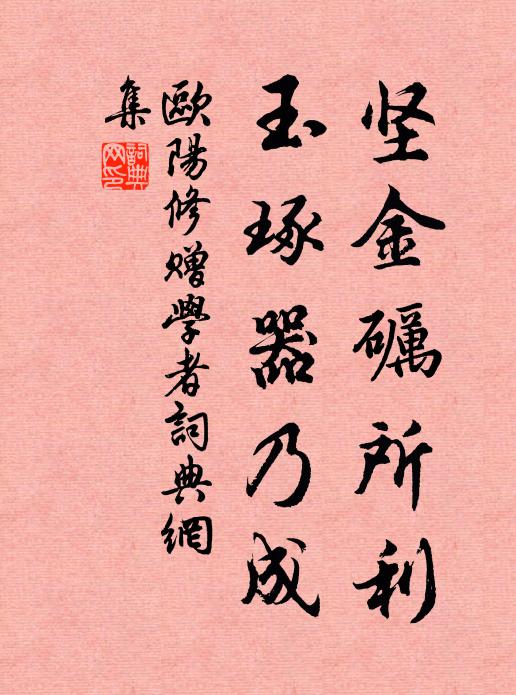 坚金礪所利
玉琢器乃成
歐陽修赠學者詞典網
集
詞典網印